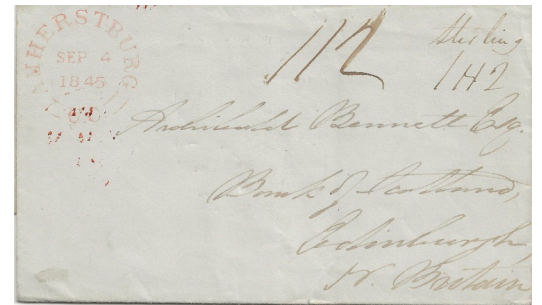 AMHERSTBURG
SEP 4
1845
112
Sterling
1H2
Archibald Bennett Esq.
Bank of Scotland,
Edinburgh,
N. Britain